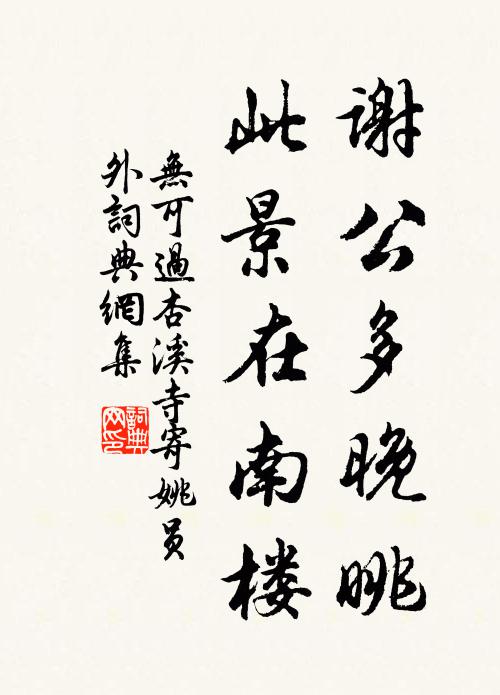 谢公多晚眺
此景在南楼
無可過杏溪寺寄姚员
外詞典網集
詞典
网印